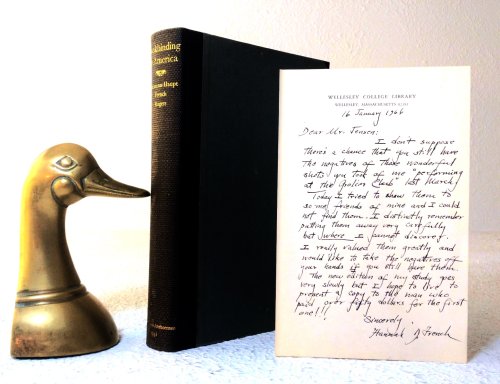 binding
America
French
Rogers
1941
WELLESLEY COLLEGE LIBRARY
WELLESLEY MASSACHUSETTS 02181
16 January 1966
Dear Mr. Jensen:
I don't suppose
there's a chance that you still have
the negatives of those wonderful
shots you took of me "performing
at the Grolier Club" last March?
Today I tried to show them to
some friends of mine and I could
not find them. I distinctly remember
putting them away very carefully
but where I cannot discover.
I really valued them greatly and
would like to take the negatives off
your hands if you still have them.
The new edition of my study goes
very slowly but I hope to live to
present a copy to the man who
paid over fifty dollars for the first
one!!!
Sincerely,
Hannah D French